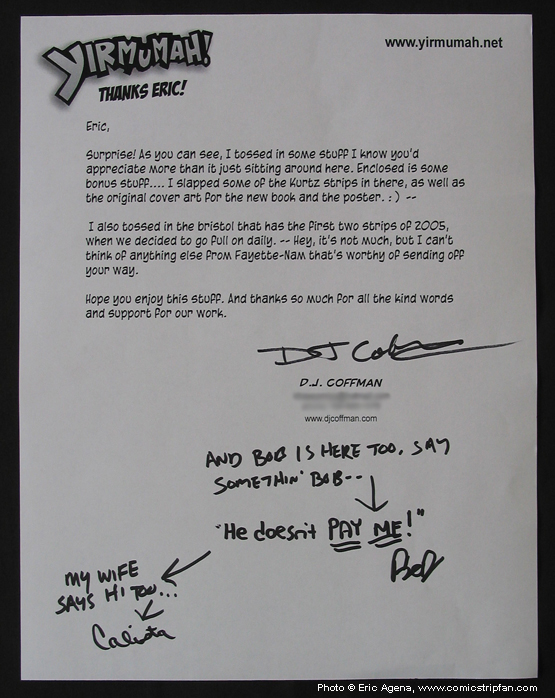 YIRMUMAH!
www.yirmumah.net
THANKS ERIC!
Eric,
Surprise! As you can see, I tossed in some stuff I know you'd
appreciate more than it just sitting around here. Enclosed is some
bonus stuff.... I slapped some of the Kurtz strips in there, as well as
the original cover art for the new book and the poster. : ) --
I also tossed in the bristol that has the first two strips of 2005,
when we decided to go full on daily. -- Hey, it's not much, but I can't
think of anything else from Fayette-Nam that's worthy of sending off
your way.
Hope you enjoy this stuff. And thanks so much for all the kind words
and support for our work.
D.J. COFFMAN
www.djcoffman.com
AND BOB IS HERE TOO, SAY
SOMETHIN' BOB--
"He doesn't PAY ME!"
Bob
MY WIFE
SAYS HI TOO...
Calista
Photo © Eric Agena, www.comicstripfan.com